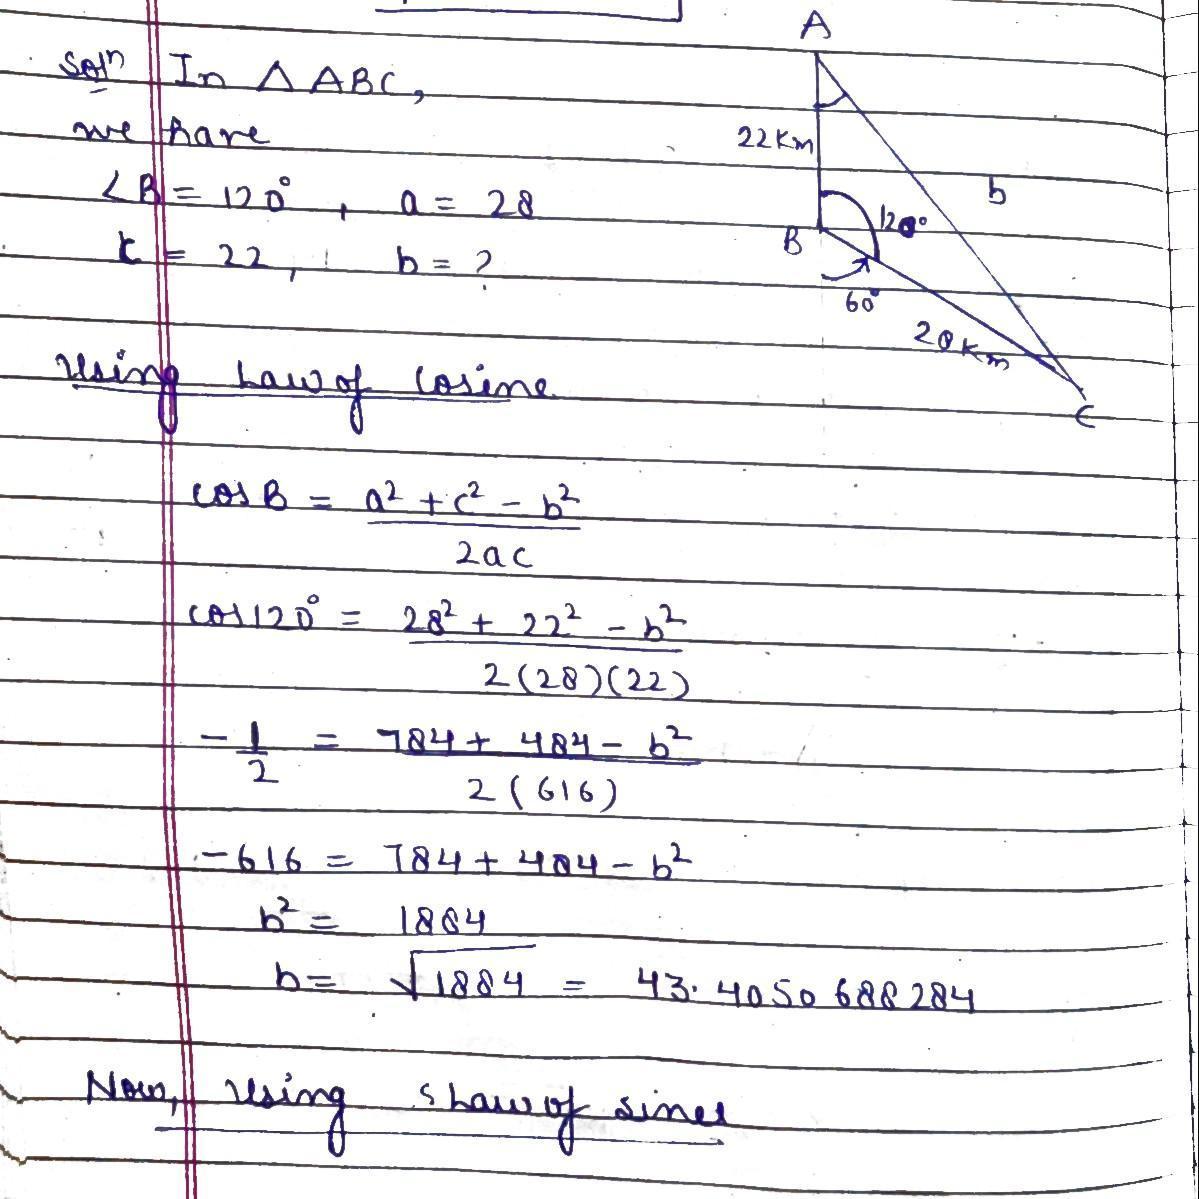 A
Solⁿ In △ ABC,
we have
22 Km
∠B = 120°, a = 28
b
120°
B
c = 22, b = ?
60°
28 Km
C
Using Law of Cosine
cos B = a² + c² - b² / 2ac
cos 120° = 28² + 22² - b² / 2(28)(22)
-1/2 = 784 + 484 - b² / 2(616)
-616 = 784 + 484 - b²
b² = 1884
b = √1884 = 43.4050688284
Now, Using Law of sines